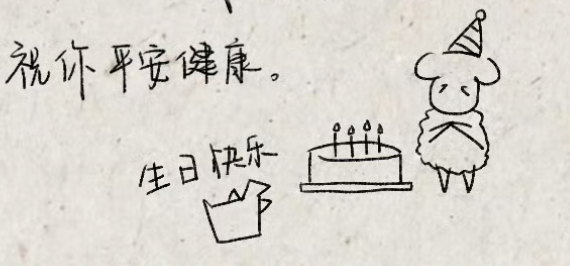 祝你平安健康。
生日快乐